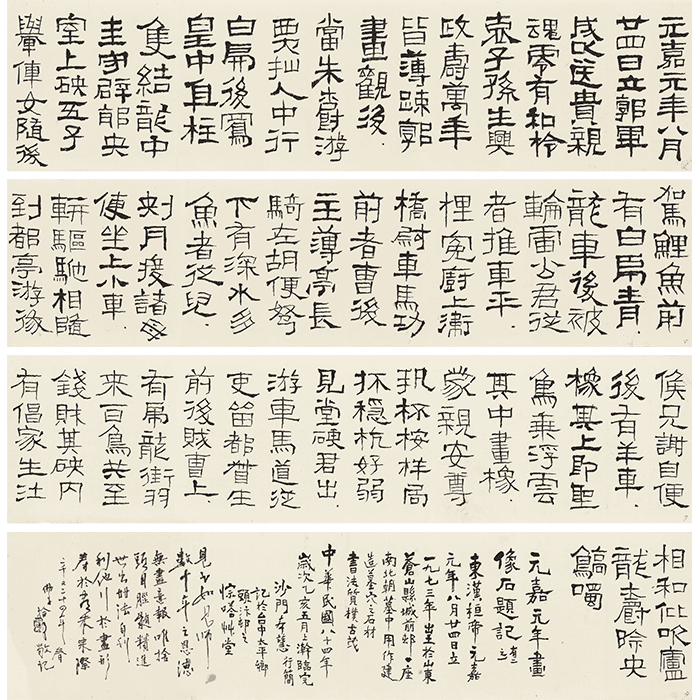 元嘉元年八月
廿四日立郭畢
成以送貴親
魂零有知柃
哀子孫生興
政壽萬年
皆薄踈郭
畫觀後
當朱爵游
人中行
白虎後鳳
皇中直柱
隻結龍中
主守辟邪央
室上硤五子
轝僮女隨後
駕鯉魚前
有白虎青
龍車後被
輪雷公君從
者推車平
狸冤廚上衛
橋尉車馬功
前者曹後
主薄亭長
騎左胡便弩
下有深水多
魚者從兒
刺舟渡諸母
便坐上小車
軿驅馳相隨
到都亭游徼
候見謝自便
後有羊車
橡其上即聖
鳥乘浮雲
其中畫橡
家親安尊
杯桉柈局
穩杭好弱
見堂硤君出
游車馬道從
吏留都督生
前後賊曹上
有虎龍銜羽
來百鳥共至
錢財其硤內
有倡家生汢
相和仳吹廬
龍爵唥央
噣
元嘉元年畫
像石題記
東漢桓帝元嘉
元年八月廿四日立
一九七三年出土於山東
蒼山縣城前邨一座
南北朝墓中用作建
造墓穴之石材
書法質樸古茂
中華民國八十四年
歲次乙亥五月上澣臨完
沙門本慧行簡
記於台中太平鄉
頭汴
艸堂
見如見師
數十年之恩德
無盡
頭目腦髓積進
世出世法自利
利他